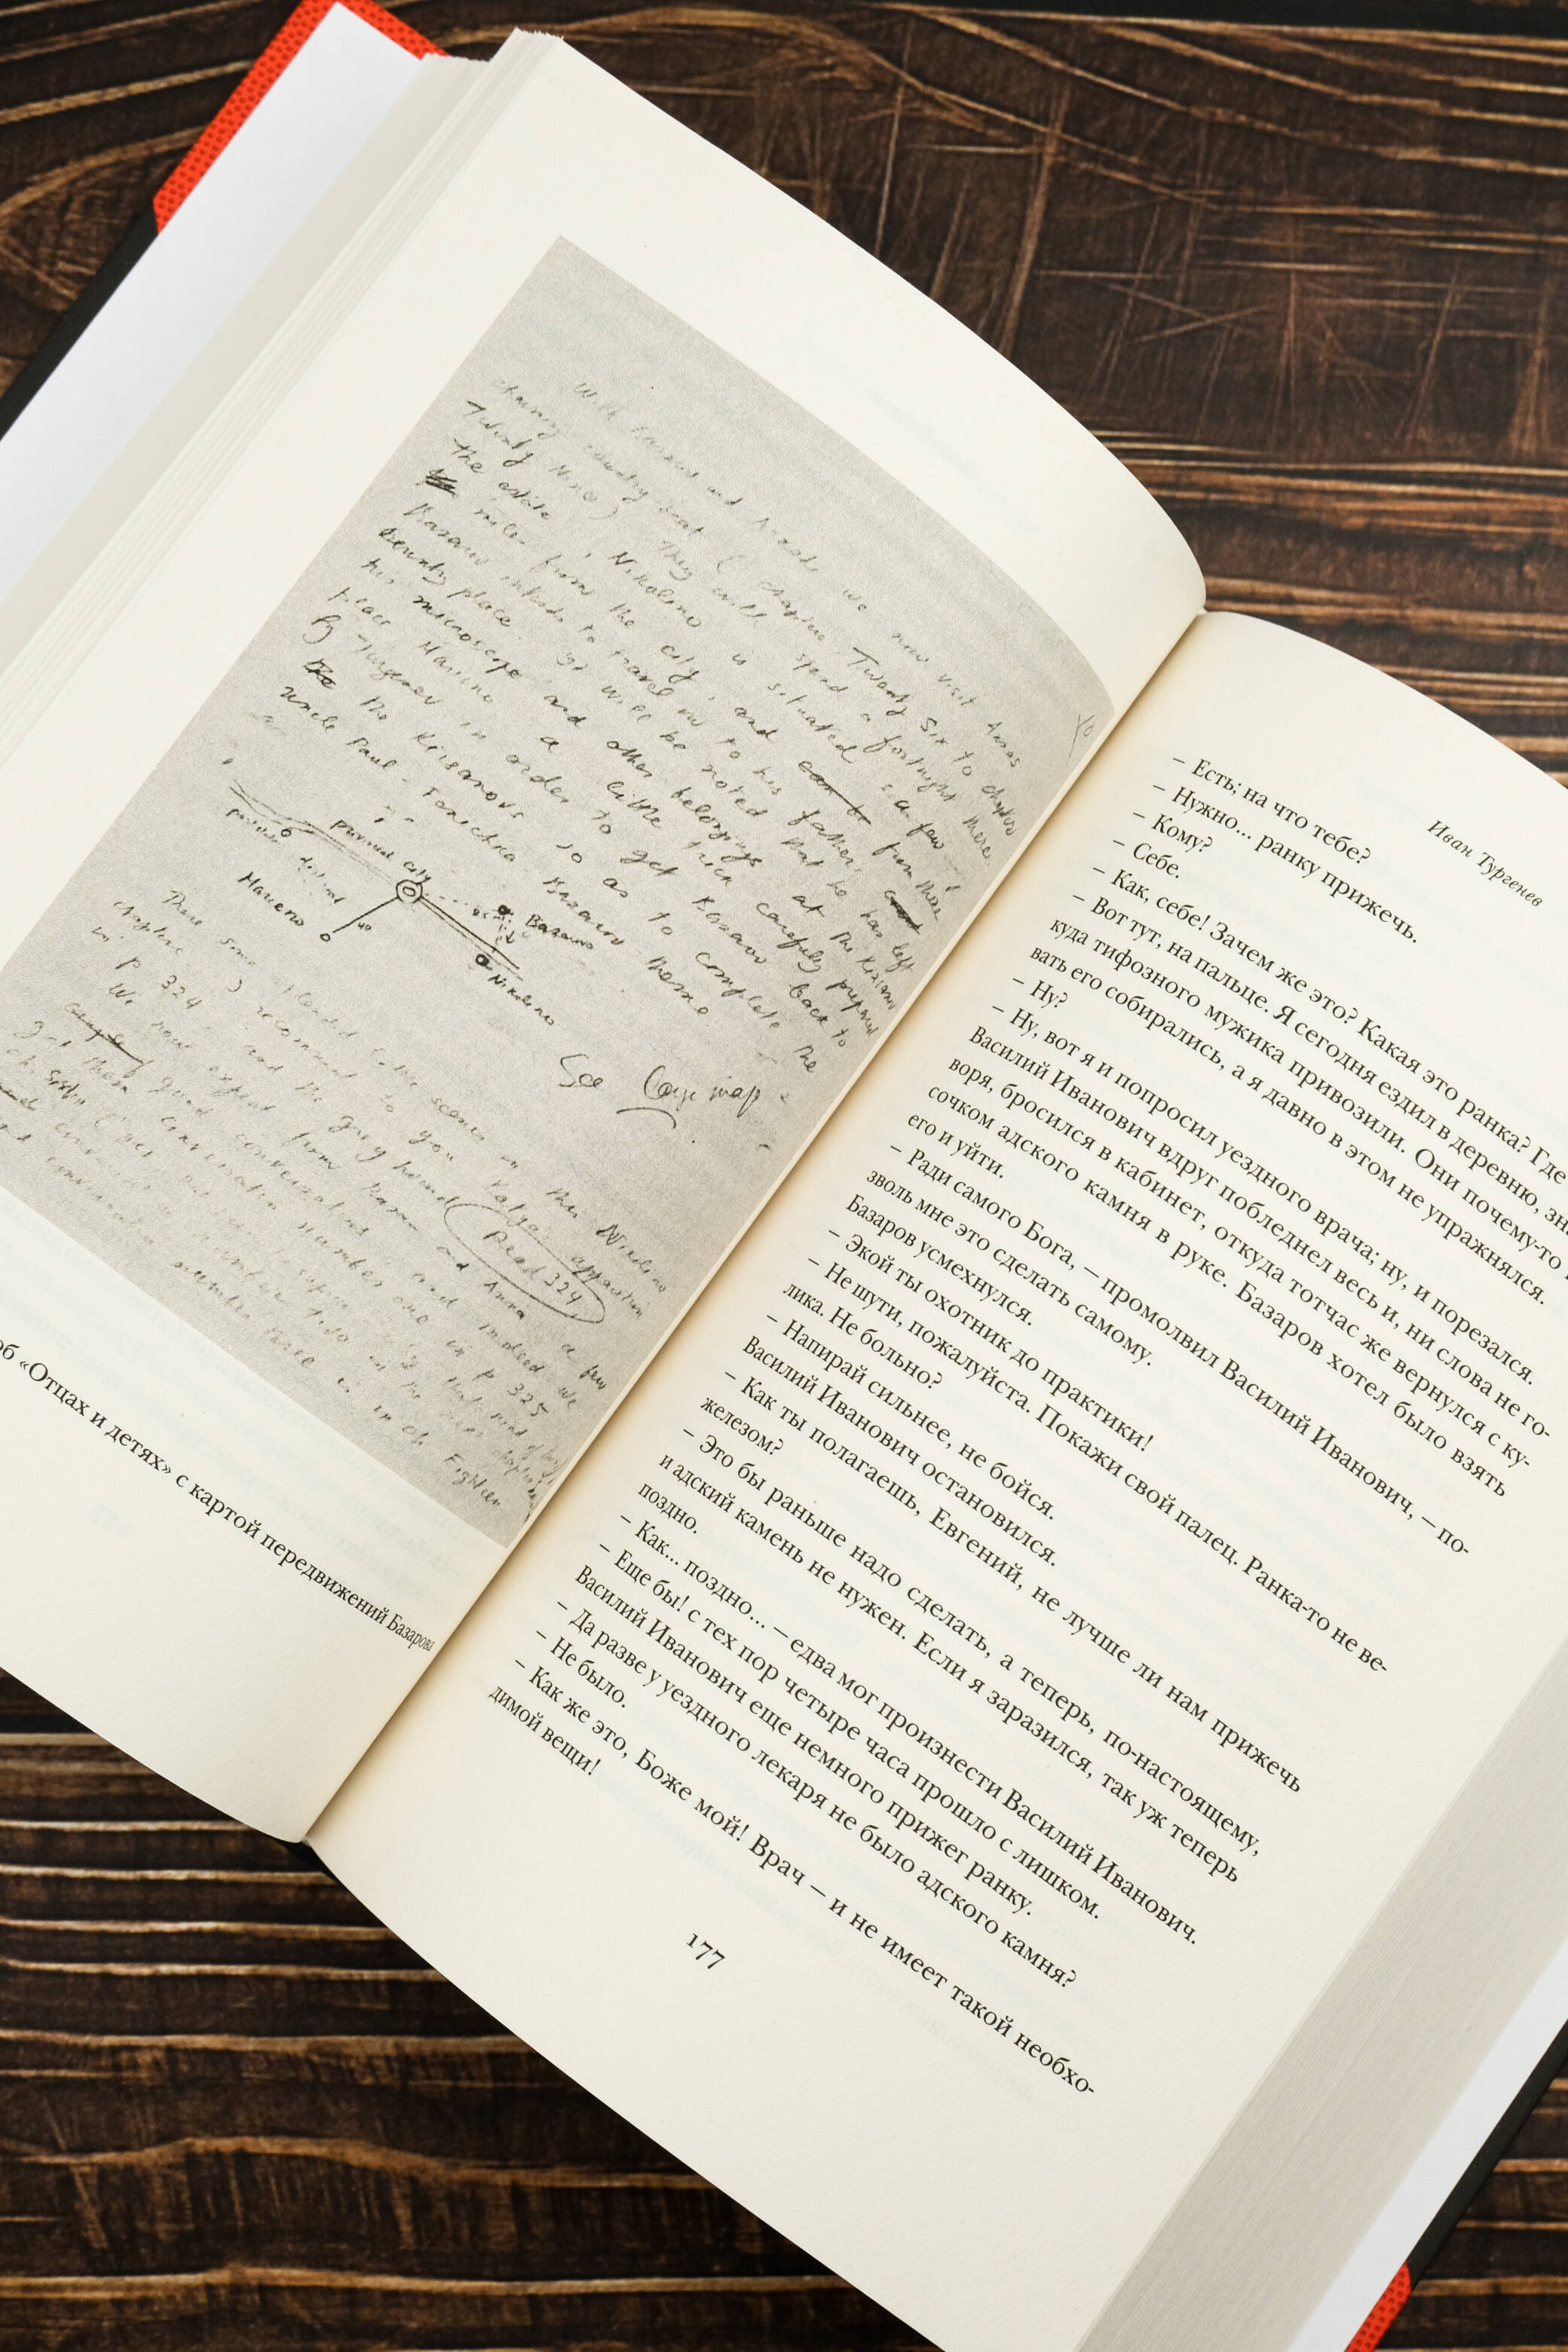 With Bazarov and Arcade we now visit Annas
charming country seat (chapter Twenty Six to chapter
Twenty Nine) They will spend a fortnight there.
The estate, Nikolino is situated a few
miles from the city, and from there
Bazarov intends to travel on to his father's
country place. It will be noted that he has left
his microscope and other belongings at the Kirsanov
place Marino a little trick carefully prepared
by Turgenev in order to get Bazarov back to
the Kirsanovs so as to complete the
uncle Paul - Fenichka Bazarov theme
provincial city
Marino
Bazarov
Nikolino
See Large map
There some splendid little scenes in this Nikolino
chapters recommend to you Katya's apparition
in p 324, and the greyhound
Read 324
We now expect from Bazarov and Anna a few
good conversations and indeed we
get them conversation number one in p 325
об «Отцах и детях» с картой передвижений Базарова
Иван Тургенев
– Есть; на что тебе?
– Нужно... ранку прижечь.
– Кому?
– Себе.
– Как, себе! Зачем же это? Какая это ранка? Где
– Вот тут, на пальце. Я сегодня ездил в деревню,
куда тифозного мужика привозили. Они почему-то
вать его собирались, а я давно в этом не упражнялся.
– Ну?
– Ну, вот я и попросил уездного врача; ну, и порезался.
Василий Иванович вдруг побледнел весь и, ни слова не го-
воря, бросился в кабинет, откуда тотчас же вернулся с ку-
сочком адского камня в руке. Базаров хотел было взять
его и уйти.
– Ради самого Бога, – промолвил Василий Иванович, – по-
зволь мне это сделать самому.
Базаров усмехнулся.
– Экой ты охотник до практики!
– Не шути, пожалуйста. Покажи свой палец. Ранка-то не ве-
лика. Не больно?
– Напирай сильнее, не бойся.
Василий Иванович остановился.
– Как ты полагаешь, Евгений, не лучше ли нам прижечь
железом?
– Это бы раньше надо сделать, а теперь, по-настоящему,
и адский камень не нужен. Если я заразился, так уж теперь
поздно.
– Как... поздно... – едва мог произнести Василий Иванович.
– Еще бы! с тех пор четыре часа прошло с лишком.
Василий Иванович еще немного прижег ранку.
– Да разве у уездного лекаря не было адского камня?
– Не было.
– Как же это, Боже мой! Врач – и не имеет такой необхо-
димой вещи!
177